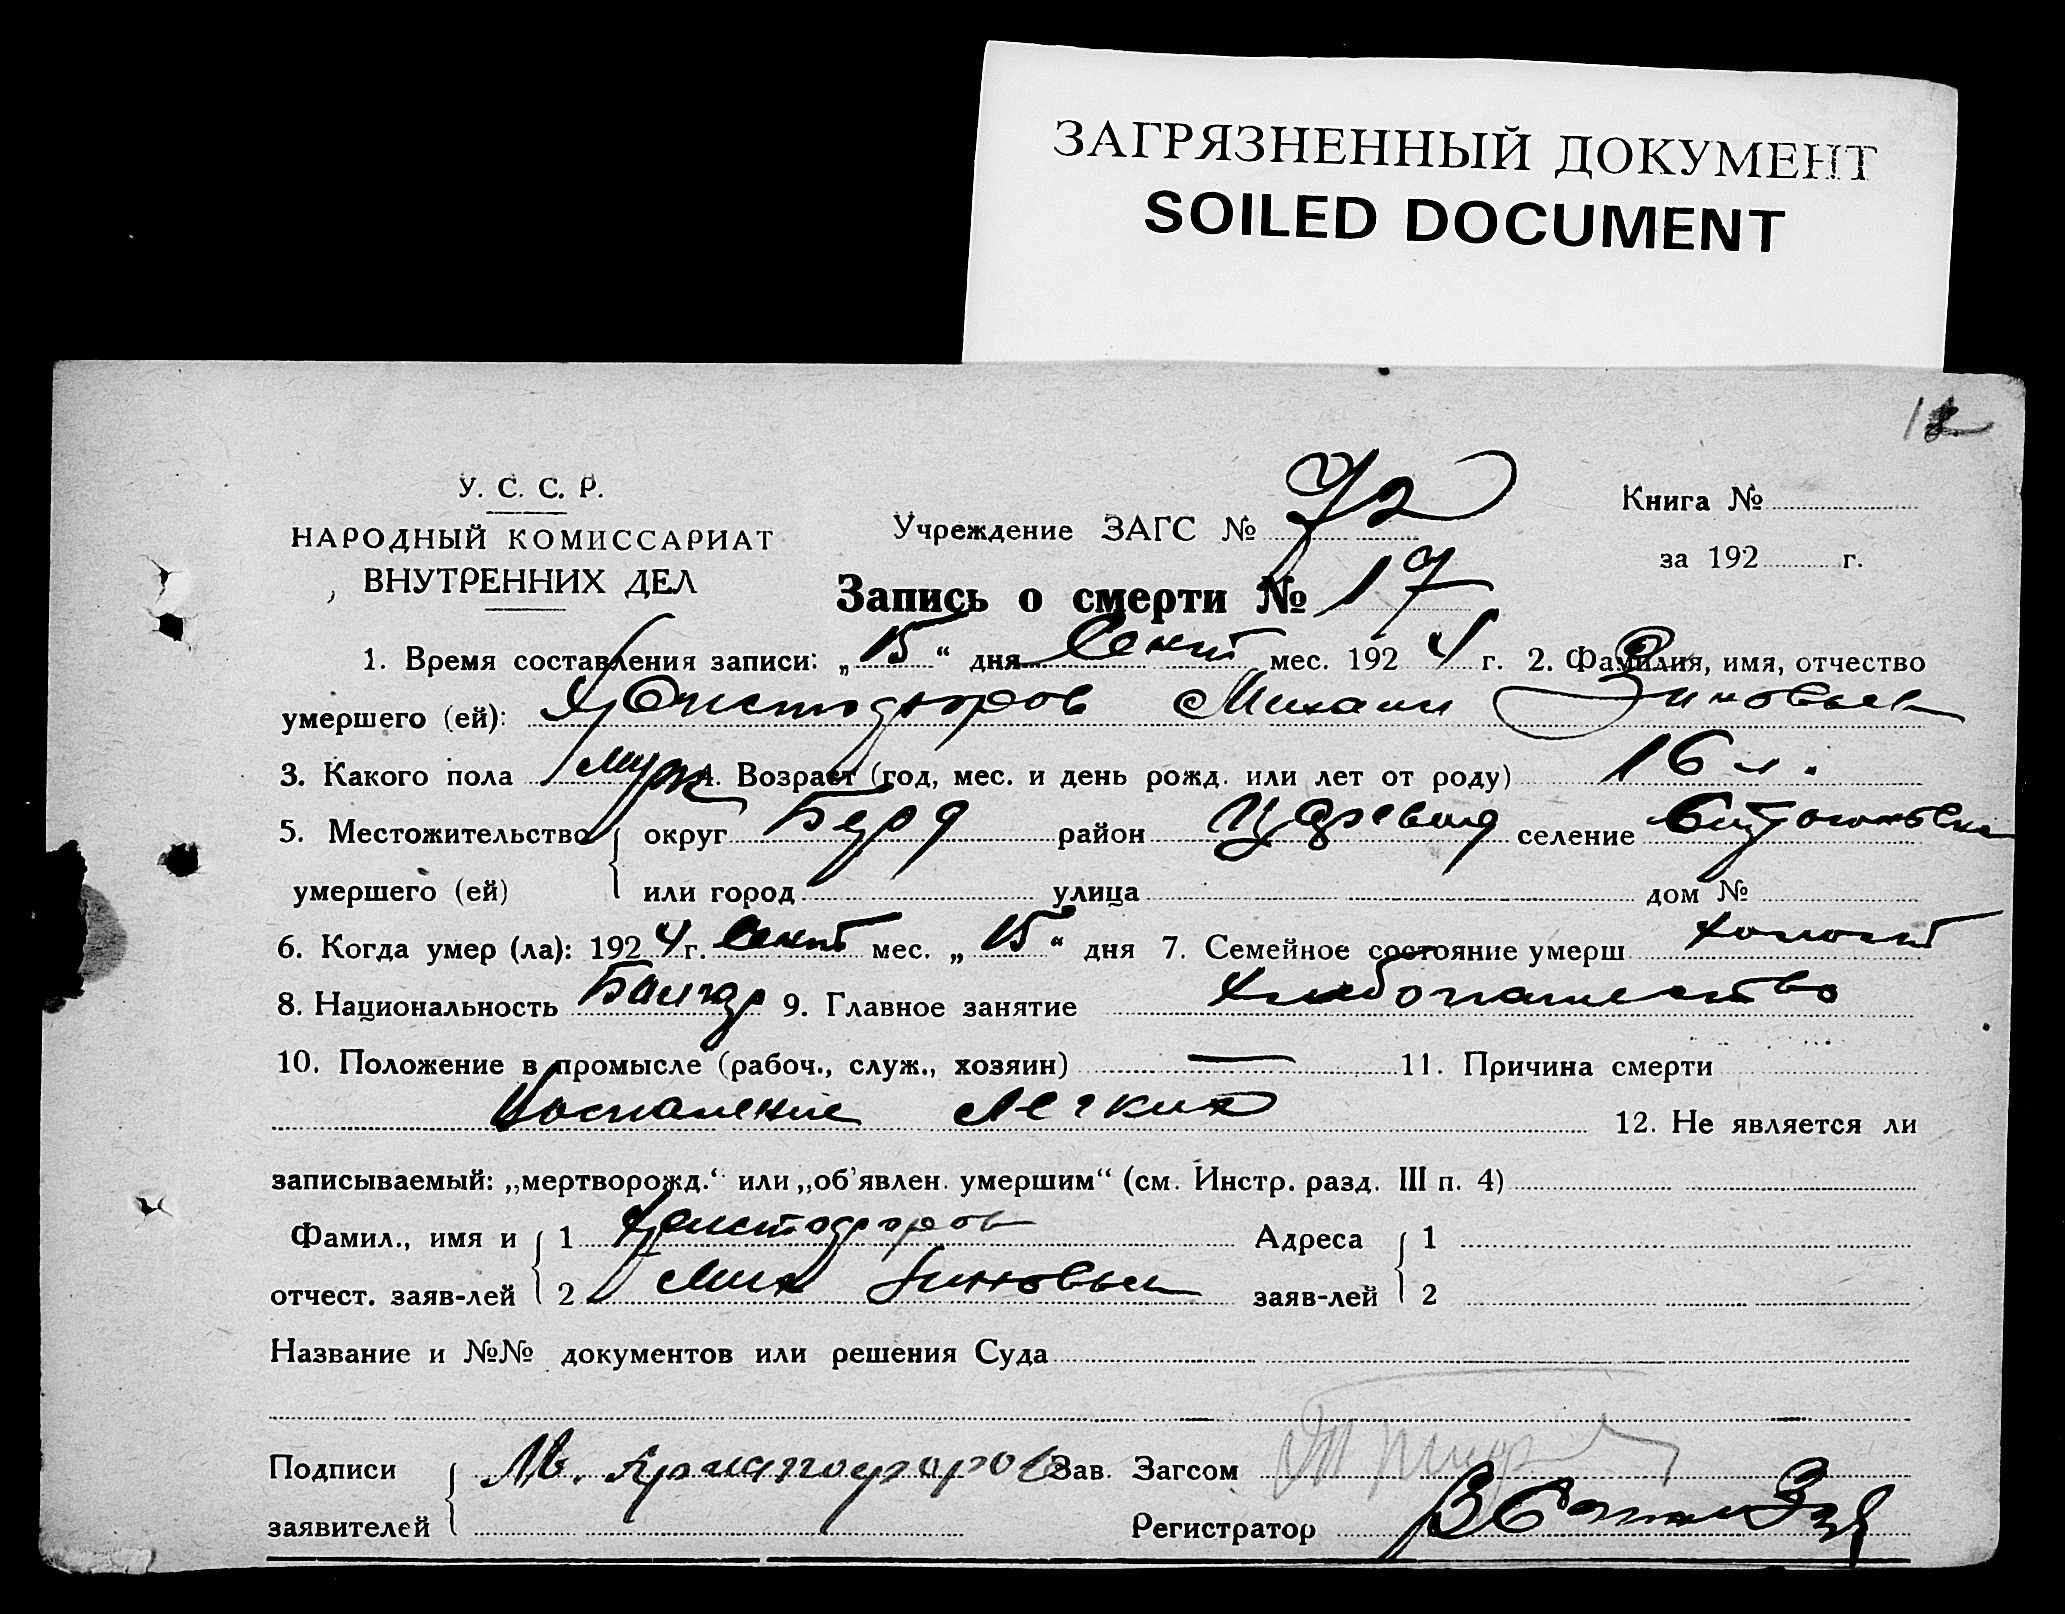 ЗАГРЯЗНЕННЫЙ ДОКУМЕНТ
SOILED DOCUMENT
У. С. С. Р.
НАРОДНЫЙ КОМИССАРИАТ
ВНУТРЕННИХ ДЕЛ
Учреждение ЗАГС № 72
Книга №
за 192 г.
Запись о смерти № 17
1. Время составления записи: „15“ дня Сент мес. 1924 г. 2. Фамилия, имя, отчество
умершего (ей): Христофоров Михаил Зиновьев
3. Какого пола муж 4. Возраст (год, мес. и день рожд. или лет от роду) 16 л.
5. Местожительство округ Берд район Цареводар селение
умершего (ей) или город улица дом №
6. Когда умер (ла): 1924 г. Сент мес. „15“ дня 7. Семейное состояние умерш холост
8. Национальность Болгар 9. Главное занятие хлебопашество
10. Положение в промысле (рабоч., служ., хозяин) — 11. Причина смерти
Воспаление легких 12. Не является ли
записываемый: „мертворожд.“ или „об'явлен. умершим“ (см. Инстр. разд. III п. 4)
Фамил., имя и 1 Христофоров Адреса 1
отчест. заяв-лей 2 Мих Зиновьев заяв-лей 2
Название и №№ документов или решения Суда
Подписи М. Христофоров Зав. Загсом
заявителей Регистратор